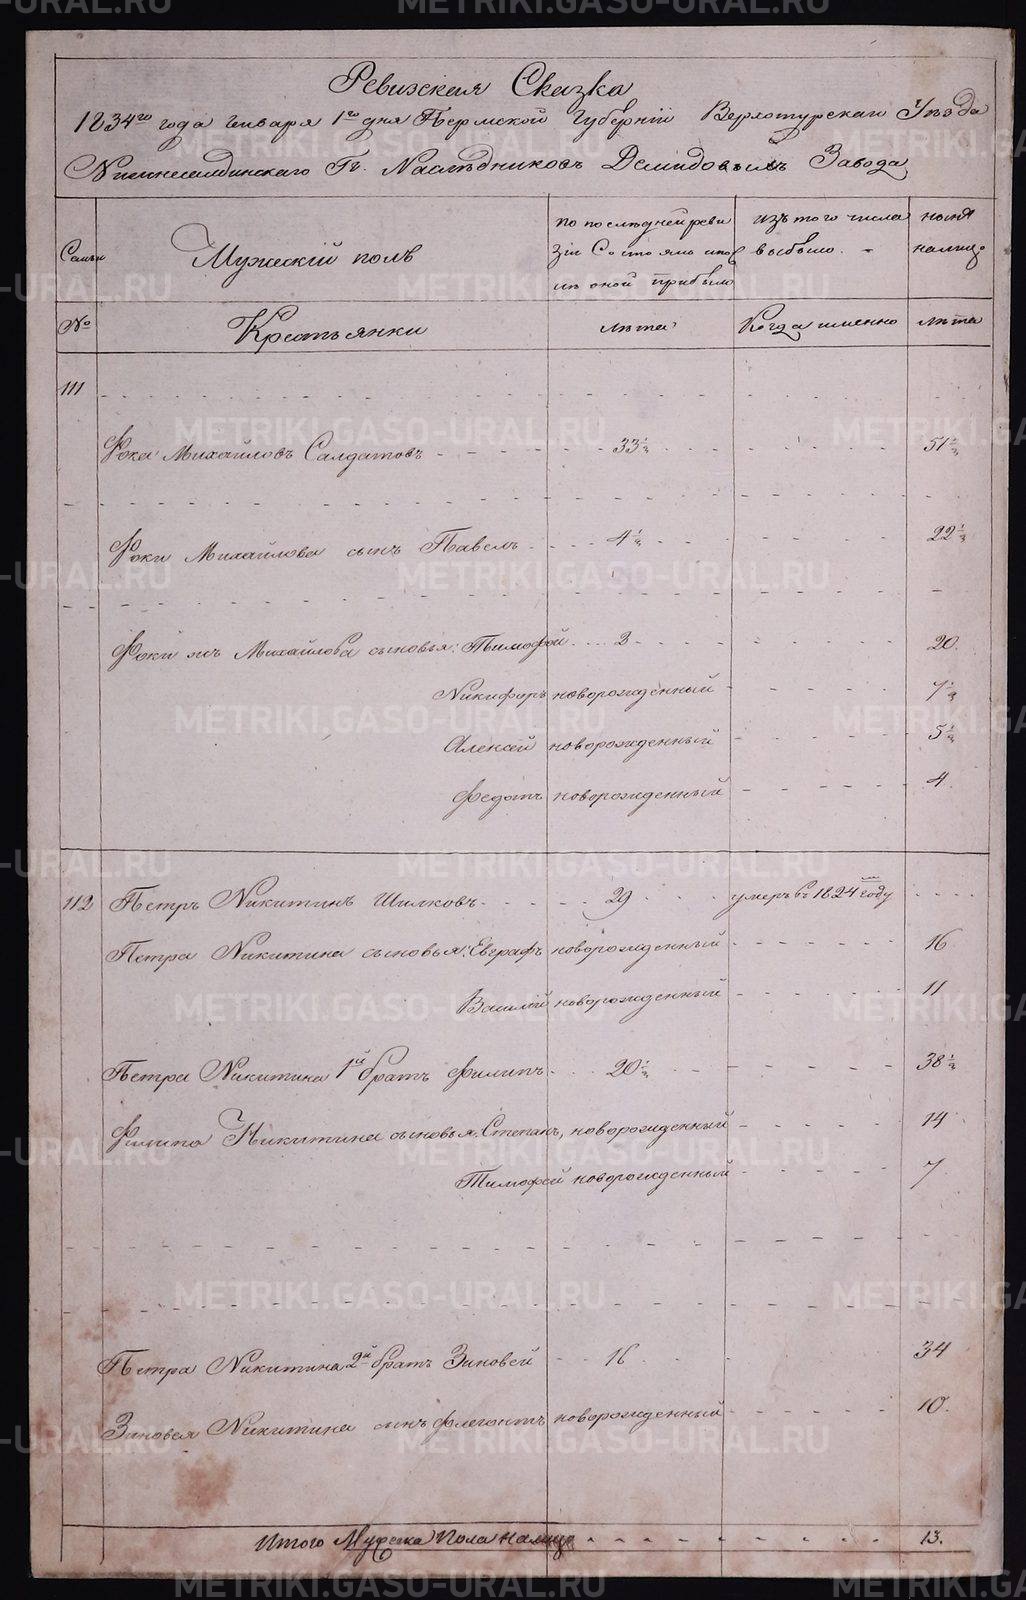 Ревижская Сказка
1834го года Генваря 1го дня Пермской Губернiи Верхотурскаго Уѣзда
Нижнесалдинскаго Гг. Наслѣдниковъ Демидовыхъ Завода
Семьи
Мужескiй полъ
По последней реви
зiи Состояло и пос
лѣ оной прибыло
изъ того числа
выбыло.
ныне
налицо
№
Крестьянки
лѣта
Когда именно
лѣта
111
Фока Михайловъ Салдатовъ 33½ 51½
Фоки Михайлова сынъ Павелъ 4½ 22½
Фоки жъ Михайлова сыновья: Тимофей 2 20.
Никифоръ новорожденный 7½
Алексей новорожденный 5½
Федотъ новорожденный 4
112 Петръ Никитинъ Шилковъ 29 умеръ въ 1824м году
Петра Никитина сыновья: Евграфъ новорожденный 16
Василiй новорожденный 11
Петра Никитина 1й братъ Филипъ 20½ 38½
Филипа Никитина сыновья: Степанъ, новорожденный 14
Тимофей новорожденный 7
Петра Никитина 2й братъ Зиновей 16 34
Зиновея Никитина сынъ Флегонтъ новорожденный 10.
Итого Мужеска Пола налицо 13.
METRIKI.GASO-URAL.RU